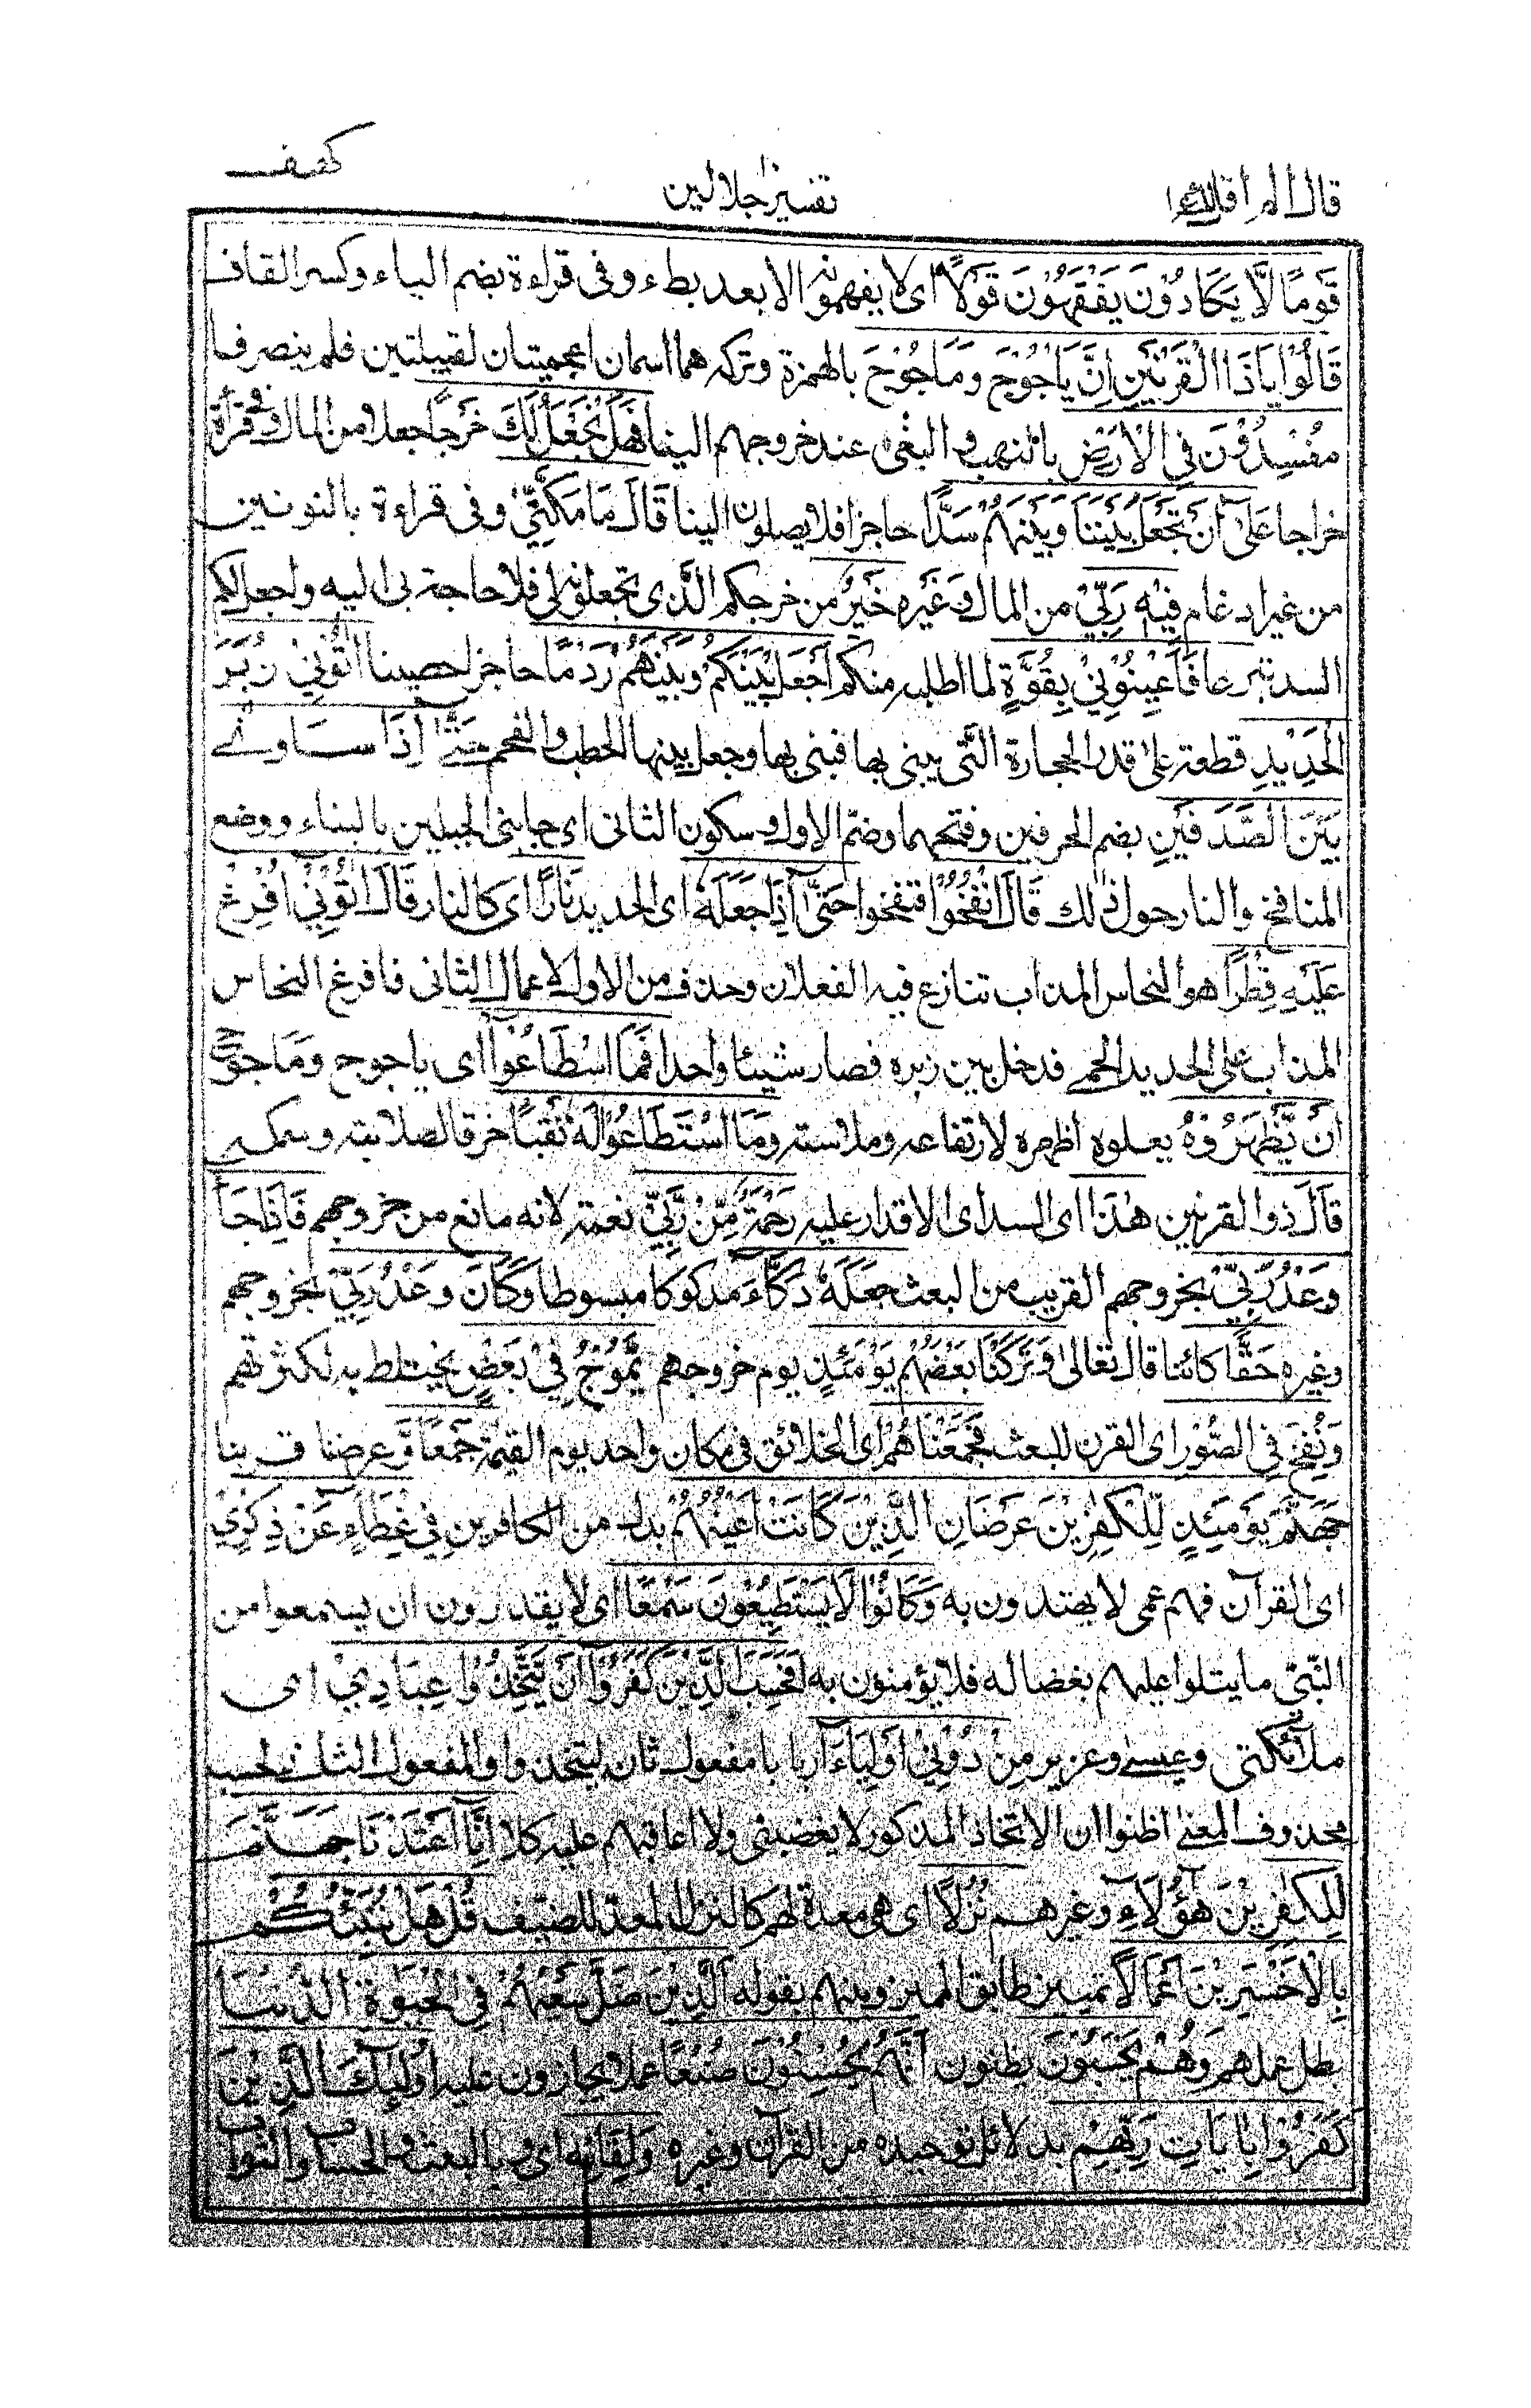 قال الم اقل لك
تفسير جلالين
كهف
قَوْمًا لَّا يَكَادُوْنَ يَفْقَهُوْنَ قَوْلًا اى لا يفهمونه الا بعد بطء وفى قراءة بضم الياء وكسر القاف
قَالُوْا يَاذَا الْقَرْنَيْنِ اِنَّ يَاْجُوْجَ وَمَاْجُوْجَ بالهمزة وتركه هما اسمان اعجميتان لقبيلتين فلم ينصرفا
مُفْسِدُوْنَ فِي الْاَرْضِ بالنهب والبغى عند خروجهم الينا فَهَلْ نَجْعَلُ لَكَ خَرْجًا جعلا من المال وفى قرأة
خراجا عَلٰى اَنْ تَجْعَلَ بَيْنَنَا وَبَيْنَهُمْ سَدًّا حاجزا فلا يصلون الينا قَالَ مَا مَكَّنِّيْ وفى قراءة بالنونين
من غير ادغام فِيْهِ رَبِّيْ من المال وغيره خَيْرٌ من خرجكم الذى تجعلونه لى فلا حاجة بى اليه واجعل لكم
السد تبرعا فَاَعِيْنُوْنِيْ بِقُوَّةٍ لما اطلبه منكم اَجْعَلْ بَيْنَكُمْ وَبَيْنَهُمْ رَدْمًا حاجزا حصينا اٰتُوْنِيْ زُبَرَ
الْحَدِيْدِ قطعة على قدر الحجارة التى يبنى بها فبنى بها وجعل بينها الحطب والفحم حَتّٰى اِذَا سَاوٰى
بَيْنَ الصَّدَفَيْنِ بضم الحرفين وفتحهما وضم الاول وسكون الثانى اى جانبى الجبلين بالبناء ووضع
المنافخ والنار حول ذلك قَالَ انْفُخُوْا فنفخوا حَتّٰى اِذَا جَعَلَهٗ اى الحديد نَارًا اى كالنار قَالَ اٰتُوْنِيْ اُفْرِغْ
عَلَيْهِ قِطْرًا هو النحاس المذاب تنازع فيه الفعلان وحذف من الاول لاعمال الثانى فافرغ النحاس
المذاب على الحديد المحمى فدخل بين زبره فصار شيئا واحدا فَمَا اسْطَاعُوْا اى ياجوج وَمَاجوج
اَنْ يَّظْهَرُوْهُ يعلوه ظهره لارتفاعه وملاسته وَمَا اسْتَطَاعُوْا لَهٗ نَقْبًا خرقا لصلابته وسمكه
قَالَ ذو القرنين هٰذَا اى السد اى الاقدار عليه رَحْمَةٌ مِّنْ رَّبِّيْ نعمة لانه مانع من خروجهم فَاِذَا جَآءَ
وَعْدُ رَبِّيْ بخروجهم القريب من البعث جَعَلَهٗ دَكَّآءَ مدكوكا مبسوطا وَكَانَ وَعْدُ رَبِّيْ بخروجهم
وغيره حَقًّا كائنا قال تعالى وَتَرَكْنَا بَعْضَهُمْ يَوْمَئِذٍ يوم خروجهم يَّمُوْجُ فِيْ بَعْضٍ يختلط به لكثرتهم
وَنُفِخَ فِي الصُّوْرِ اى القرن للبعث فَجَمَعْنَاهُمْ اى الخلائق فى مكان واحد يوم القيمة جَمْعًا وَّعرضنا قربنا
جَهَنَّمَ يَوْمَئِذٍ لِّلْكٰفِرِيْنَ عَرْضَا نِ الَّذِيْنَ كَانَتْ اَعْيُنُهُمْ بدل من الكافرين فِيْ غِطَآءٍ عَنْ ذِكْرِيْ
اى القرآن فهم عمى لا يهتدون به وَكَانُوْا لَا يَسْتَطِيْعُوْنَ سَمْعًا اى لا يقدرون ان يسمعوا من
النبى ما يتلوا عليهم بغضا له فلا يؤمنون به اَفَحَسِبَ الَّذِيْنَ كَفَرُوْا اَنْ يَّتَّخِذُوْا عِبَادِيْ اى
ملائكتى وعيسى وعزير مِنْ دُوْنِيْ اَوْلِيَآءَ اربابا مفعول ثان ليتخذوا والمفعول الثانى لحسب
محذوف المعنى اظنوا ان الاتخاذ المذكور لا يغضبنى ولا اعاقبهم عليه كلا اِنَّا اَعْتَدْنَا جَهَنَّمَ
لِلْكٰفِرِيْنَ هٰؤُلَاءِ وغيرهم نُزُلًا اى هى معدة لهم كالنزل المعد للضيف قُلْ هَلْ نُنَبِّئُكُمْ
بِالْاَخْسَرِيْنَ اَعْمَالًا تمييز طابق المميز وبينهم بقوله اَلَّذِيْنَ ضَلَّ سَعْيُهُمْ فِي الْحَيٰوةِ الدُّنْيَا
بطل عملهم وَهُمْ يَحْسَبُوْنَ يظنون اَنَّهُمْ يُحْسِنُوْنَ صُنْعًا عملا يجازون عليه اُولٰٓئِكَ الَّذِيْنَ
كَفَرُوْا بِاٰيَاتِ رَبِّهِمْ بدلائل توحيده من القرآن وغيره وَلِقَآئِهٖ اى وبالبعث والحساب والثواب